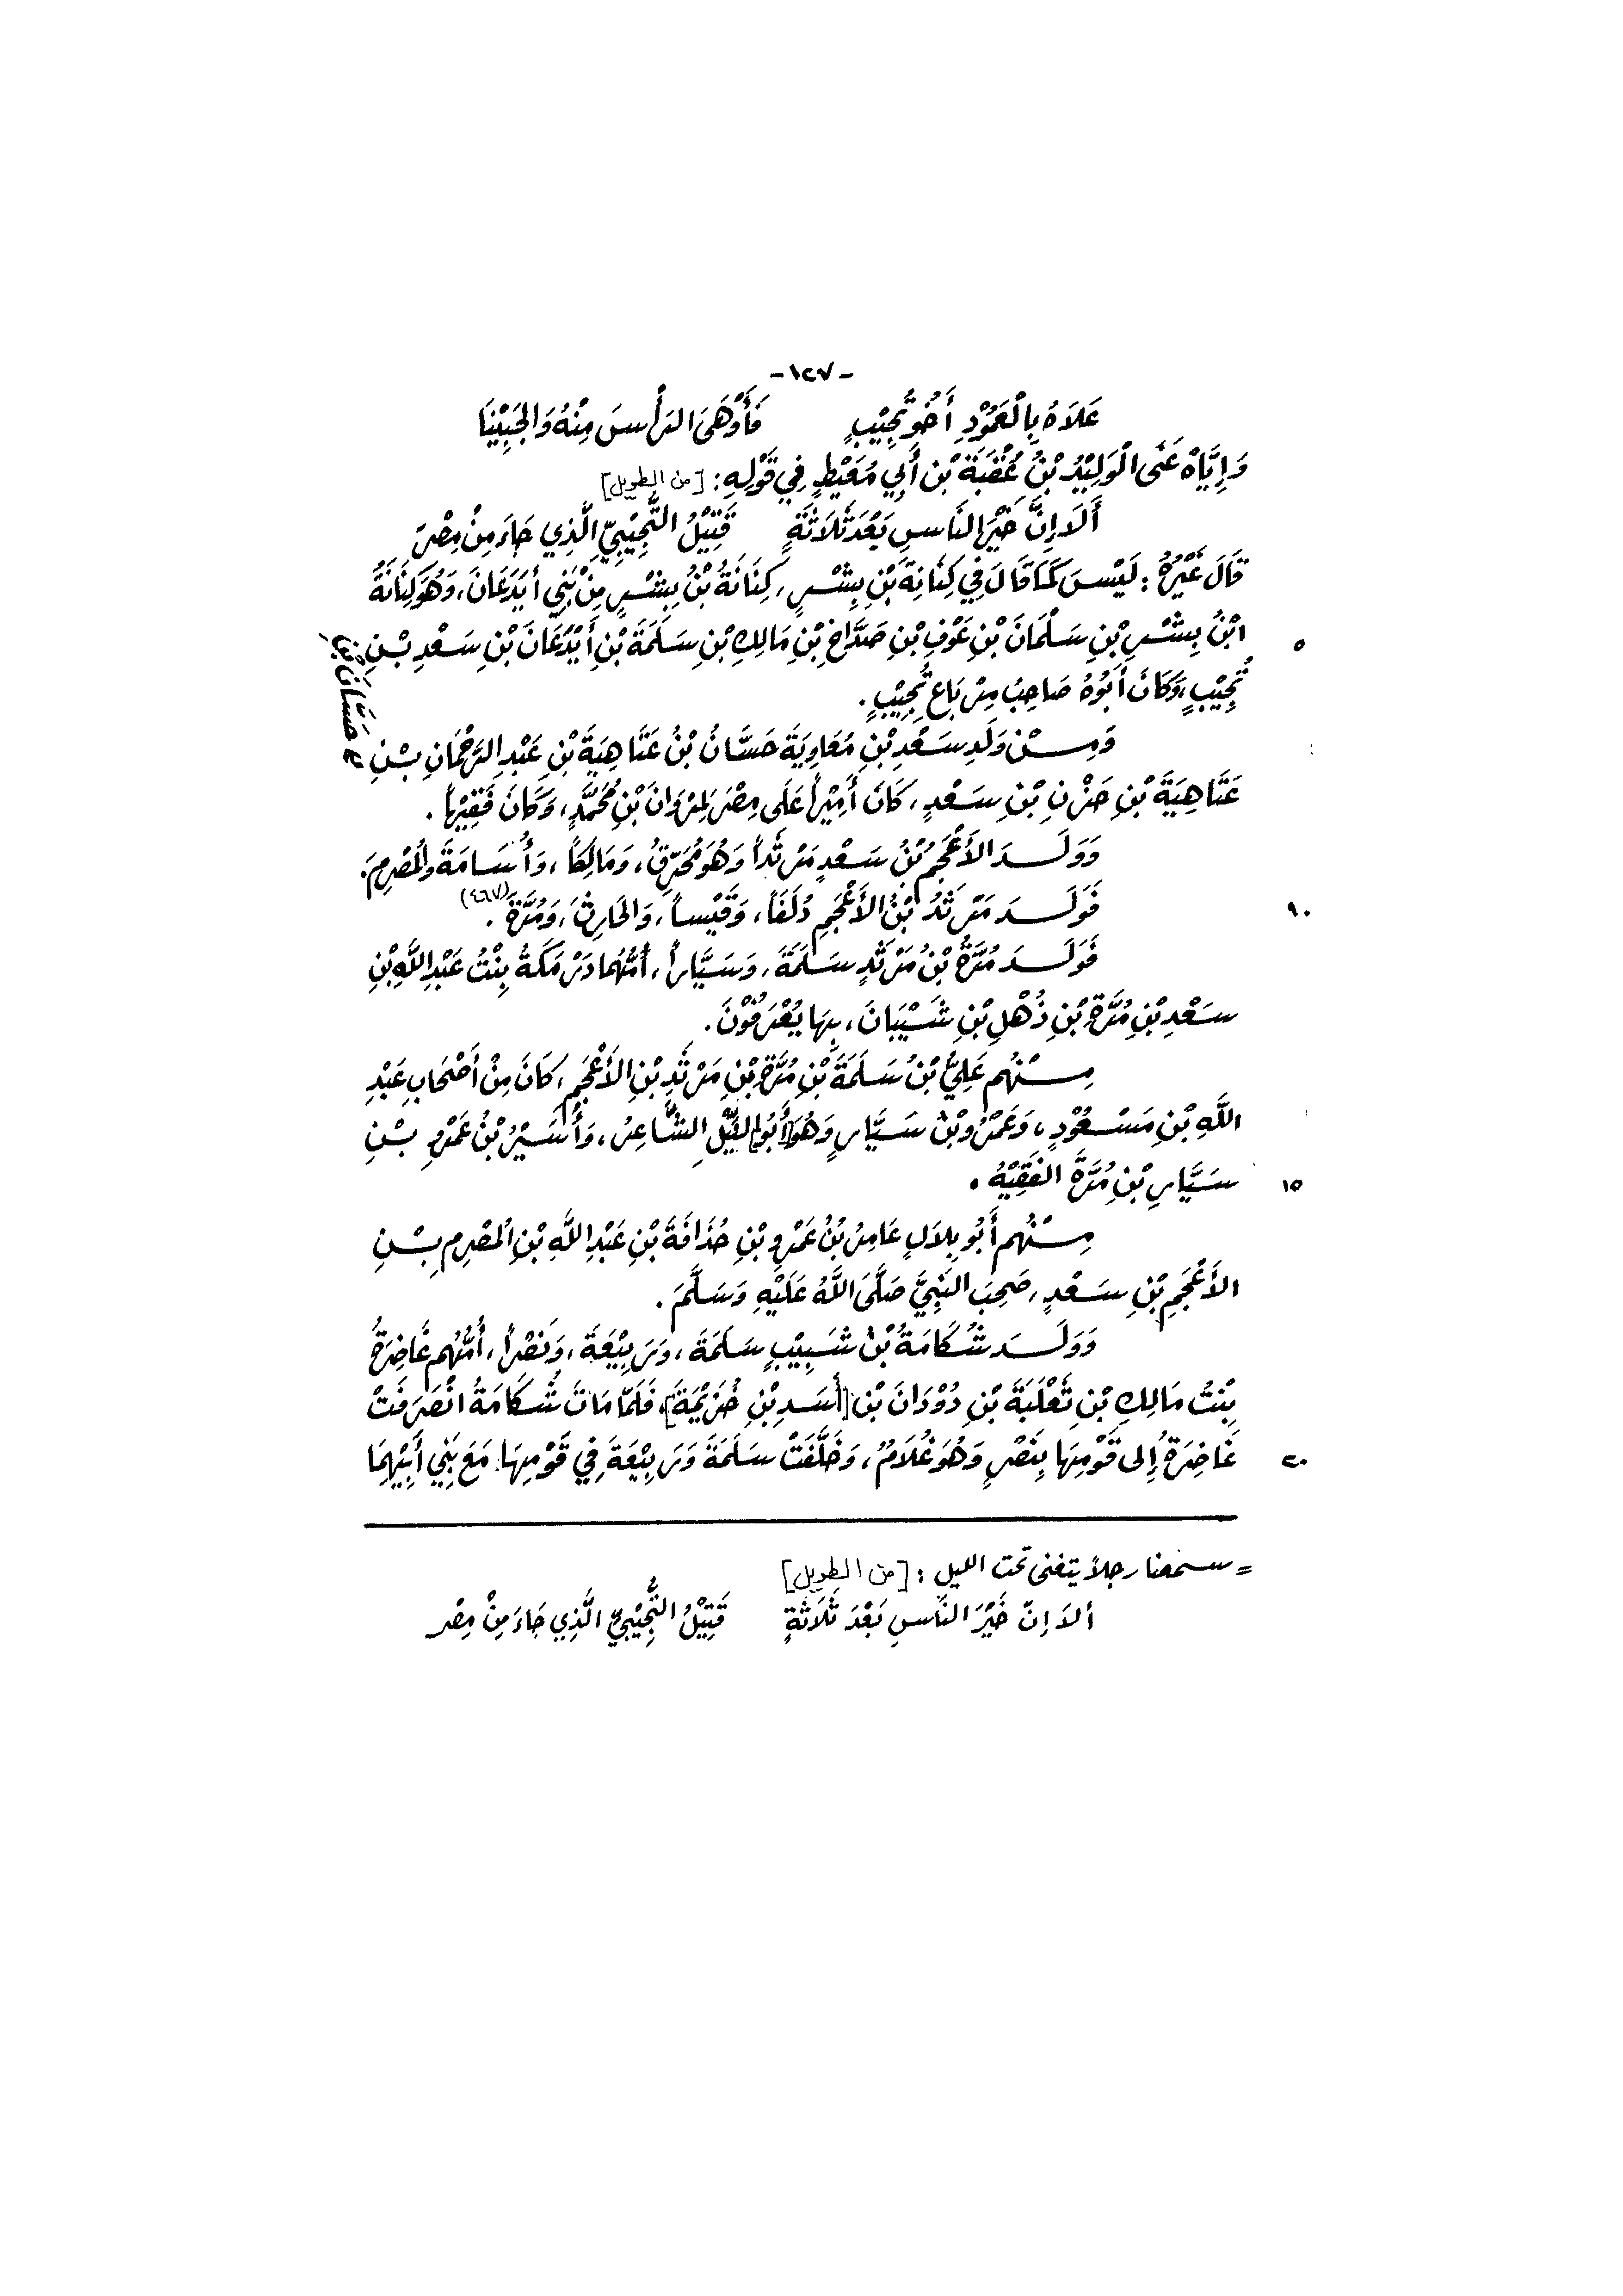 -١٢٧-
عَلَاهُ بِالْعَمُوْدِ أَخُو تُجِيْبٍ فَأَوْهَى الرَأْسَ مِنْهُ وَالجَبِيْنَا
وَإِيَّاهُ عَنَى الْوَلِيْدُ بْنُ عُقْبَةَ بْنِ أَبِي مُعَيْطٍ فِي قَوْلِهِ : [من الطويل]
أَلَا إِنَّ خَيْرَ النَاسِ بَعْدَ ثَلَاثَةٍ قَتِيْلُ التُّجِيْبِيِّ الَّذِي جَاءَ مِنْ مِصْرَ
قَالَ غَيْرُهُ : لَيْسَ كَمَا قَالَ فِي كِنَانَةَ بْنِ بِشْرٍ ، كِنَانَةُ بْنُ بِشْرٍ مِنْ بَنِي أَيْدَعَانَ ، وَهُوَ كِنَانَةُ
٥ ابْنُ بِشْرِ بْنِ سَلْمَانَ بْنِ عَوْفِ بْنِ صَدَّاخِ بْنِ مَالِكِ بْنِ سَلَمَةَ بْنِ أَيْدَعَانَ بْنِ سَعْدِ بْنِ
تُجِيْبٍ ، وَكَانَ أَبُوهُ صَاحِبُ مِرْبَاعِ تُجِيْبٍ .
وَمِنْ وَلَدِ سَعْدِ بْنِ مُعَاوِيَةَ حَسَّانُ بْنُ عَتَاهِيَةَ بْنِ عَبْدِ الرَحْمَانِ بْنِ حَسَّانَ بْنِ
عَتَاهِيَةَ بْنِ حَزْنِ بْنِ سَعْدٍ ، كَانَ أَمِيْراً عَلَى مِصْرَ لِمَرْوَانَ بْنِ مُحَمَّدٍ ، وَكَانَ فَقِيْهاً .
وَوَلَدَ الأَعْجَمُ بْنُ سَعْدٍ مَرْثَداً وَهُوَ مُحَرِّقُ ، وَمَالِكاً ، وَأُسَامَةَ والمُصْرِمَ .
١٠ فَوَلَدَ مَرْثَدُ بْنُ الأَعْجَمِ دُلَفاً ، وَقَيْساً ، وَالحَارِثَ ، وَمُرَّةَ (٤٦٧) .
فَوَلَدَ مُرَّةُ بْنُ مَرْثَدٍ سَلَمَةَ ، وَسَيَّاراً ، أُمُّهُمَا دَرْمَكَةُ بِنْتُ عَبْدِ اللَّهِ بْنِ
سَعْدِ بْنِ مُرَّةَ بْنِ ذُهْلِ بْنِ شَيْبَانَ ، بِهَا يُعْرَفُوْنَ .
مِنْهُم عَلِيُّ بْنُ سَلَمَةَ بْنِ مُرَّةَ بْنِ مَرْثَدِ بْنِ الأَعْجَمِ ، كَانَ مِنْ أَصْحَابِ عَبْدِ
اللَّهِ بْنِ مَسْعُوْدٍ ، وَعَمْرُو بْنُ سَيَّارٍ وَهُوَ أَبُو اللَّيْلِ الشَّاعِرُ ، وَأُسَيْرُ بْنُ عَمْرِو بْنِ
١٥ سَيَّارِ بْنِ مُرَّةَ الفَقِيْهُ .
مِنْهُم أَبُو بِلَالٍ عَامِرُ بْنُ عَمْرِو بْنِ حُذَافَةَ بْنِ عَبْدِ اللَّهِ بْنِ المُصْرِمِ بْنِ
الأَعْجَمِ بْنِ سَعْدٍ ، صَحِبَ النَبِيَّ صَلَّى اللَّهُ عَلَيْهِ وَسَلَّمَ .
وَوَلَدَ شُكَامَةُ بْنُ شَبِيْبٍ سَلَمَةَ ، وَرَبِيْعَةَ ، وَنَصْراً ، أُمُّهُم غَاضِرَةُ
بِنْتُ مَالِكِ بْنِ ثَعْلَبَةَ بْنِ دُوْدَانَ بْنِ [أَسَدِ بْنِ خُزَيْمَةَ] ، فَلَمَّا مَاتَ شُكَامَةُ انْصَرَفَتْ
٢٠ غَاضِرَةُ إِلى قَوْمِهَا بِنَصْرٍ وَهُوَ غُلَامٌ ، وَخَلَّفَتْ سَلَمَةَ وَرَبِيْعَةَ فِي قَوْمِهَا مَعَ بَنِي أَبِيْهِمَا
= سمعنا رجلاً يتغنى تحت الليل : [من الطويل]
ألَا إنّ خَيْرَ النَاسِ بَعْدَ ثَلَاثَةٍ قَتِيْلُ التُّجِيْبِيِّ الَّذِي جَاءَ مِنْ مِصْر